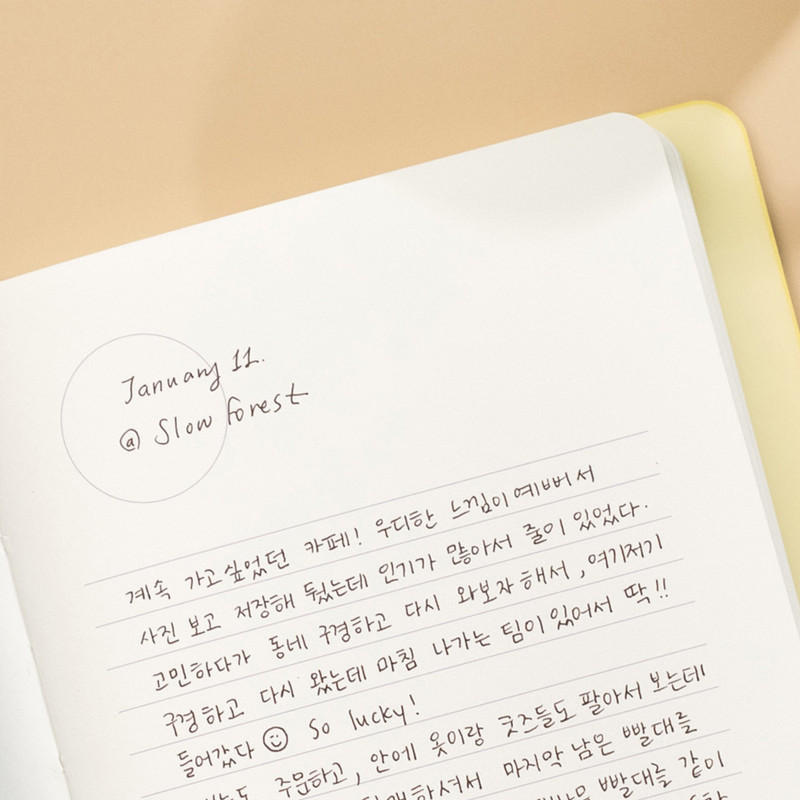 January 11.
@ Slow forest
계속 가고싶었던 카페! 우디한 느낌이예뻐서
사진 보고 저장해 뒀는데 인기가 많아서 줄이 있었다.
고민하다가 동네 구경하고 다시 와보자해서, 여기저기
구경하고 다시 왔는데 마침 나가는 팀이있어서 딱!!
들어갔다 ☺ So lucky!
주문하고, 안에 옷이랑 굿즈들도 팔아서 보는데
하셔서 마지막 남은 빨대를
빨대를 같이